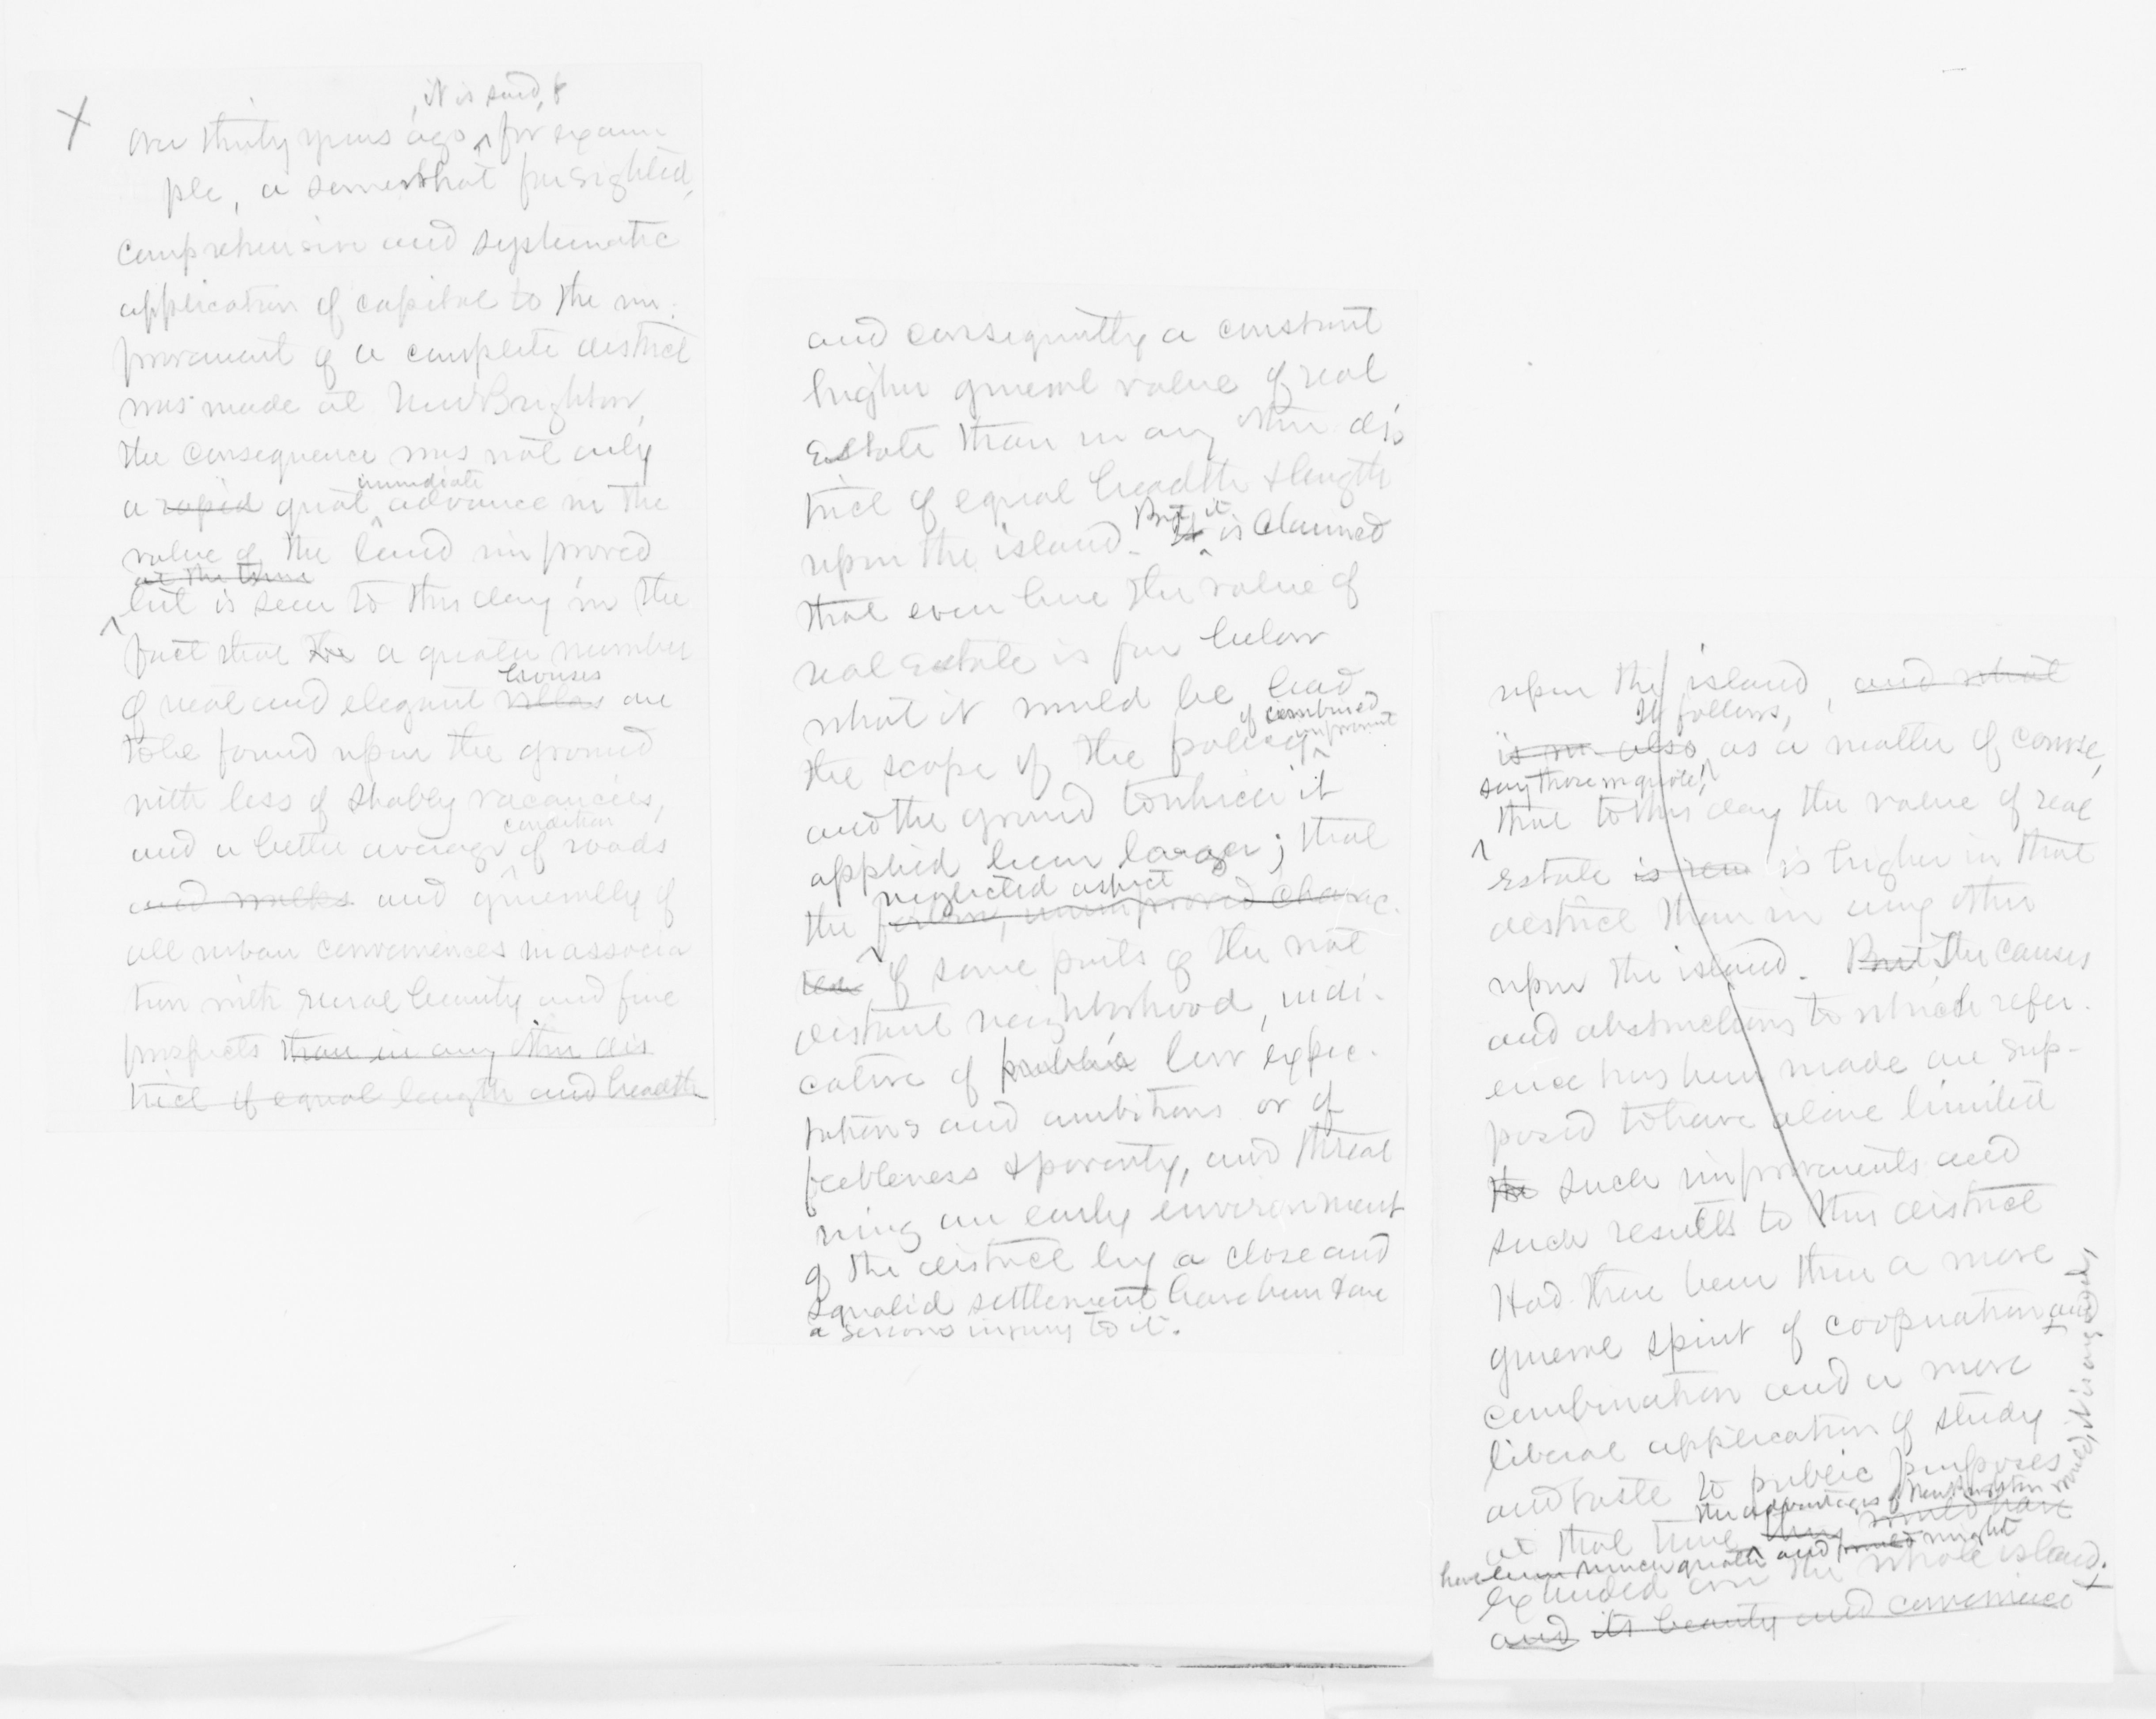 X
, it is said, &
Over thirty years ago ^ for exam
ple, a somewhat farsighted,
comprehensive and systematic
application of capital to the im-
provement of a complete district
was made at New Brighton,
the consequence was not only
immediate
a rapid great ^ advance in the
value of the land improved
at the time
but is seen to this day in the
fact that the a greater number
houses
of neat and elegant villas are
to be found upon the ground
with less of shabby vacancies,
condition
and a better average ^ of roads
and walks and generally of
all urban conveniences in associa
tion with rural beauty and fine
prospects than in any other dis
trict of equal length and breadth
and consequently a constant
higher general value of real
Estate than in any other dis
trict of equal breadth & length
But it
upon the island. It ^ is claimed
that even here the value of
real estate is far below
what it would be had
of combined improvement
the scope of the policy ^
and the ground to which it
applied been larger; that
neglected aspect
the forlorn, unimproved charac-
ter ^ of some parts of the not
distant neighborhood, indi-
cative of low expec-
tations and ambitions or of
feebleness & poverty, and threat
ning an early environment
of the district by a close and
squalid settlement have been & are
a serious injury to it.
upon the island, and what
It follows,
is so also, as a matter of course,
say those in quote,
that to this day the value of real
estate is is higher in that
district than in any other
upon the island. But The causes
and obstructions to which refer-
ence has been made are sup-
posed to have alone limited
the such improvements and
such results to this district
Had there been then a more
general spirit of cooperation and
combination and a more
liberal application of study
and taste to public purposes
the advantages of New Brighton would, it is argued,
at that time they would have
have been much greater and would might
extended over the whole island.
and its beauty and convenience